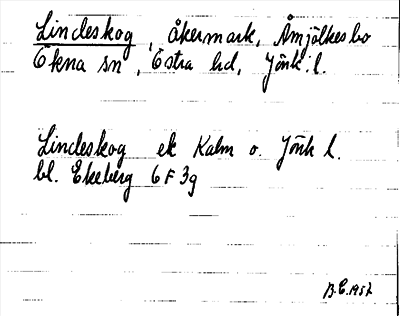 Lindeskog, Åkermark, Åmjölkesbo
Ökna sn, Östra hd, Jönk. l.
Lindeskog ek Kalm o. Jönk l.
bl. Ekeberg 6 F 3g
B.E. 1957